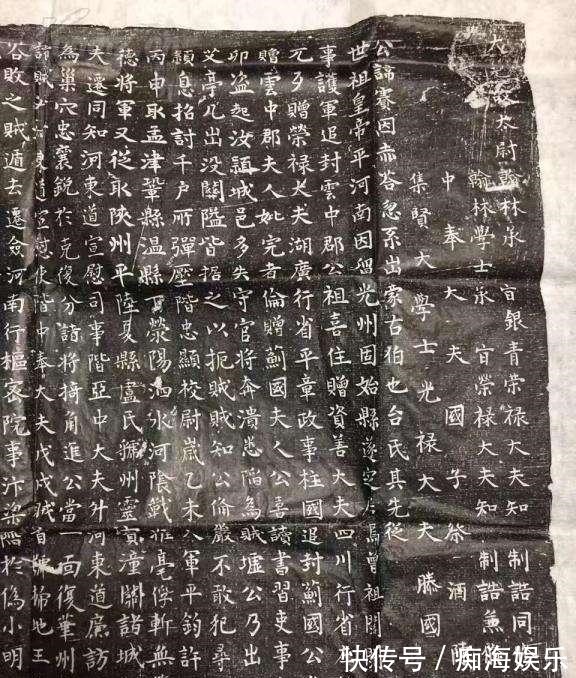 大 太尉翰林承 旨銀青榮禄大夫知 制誥同
翰林學士承 旨榮禄大夫知 制誥兼
中奉大夫國子祭酒
集賢大學士光禄大夫滕國
公諱賽因赤答忽系出蒙古伯也台氏其先從
世祖皇帝平河南因留光州固始縣遂定居焉曾祖闊
事護軍追封雲中郡公祖喜住贈資善大夫四川行省
兀乃贈榮禄大夫湖廣行省平章政事柱國追封薊國公
贈雲中郡夫人妣完者倫贈薊國夫人公喜讀書習吏事
卯盗起汝潁城邑多失守官將奔潰悉陷為賊墟公乃出
艾亭凡出没關隘皆据之以扼賊賊知公備嚴不敢犯尋
潁息招討千户所彈壓階忠顯校尉歲乙未從軍平鈞許
丙申取孟津鞏縣温縣下滎陽汜水河陰戰睢亳俘斬無
德將軍又從取陝州平陸夏縣盧氏虢州靈寶潼關諸城
夫遷同知河東道宣慰司事階亞中大夫升河東道廉訪
為巢穴忠襄鋭於克復分諸將掎角進公當一面復華州
賊 東道宣慰使階中奉大夫戊戌賊首 掃地王
谷敗之賊遁去遷僉河南行樞密院事汴梁陷於偽小明
快传号 / 痴海娱乐